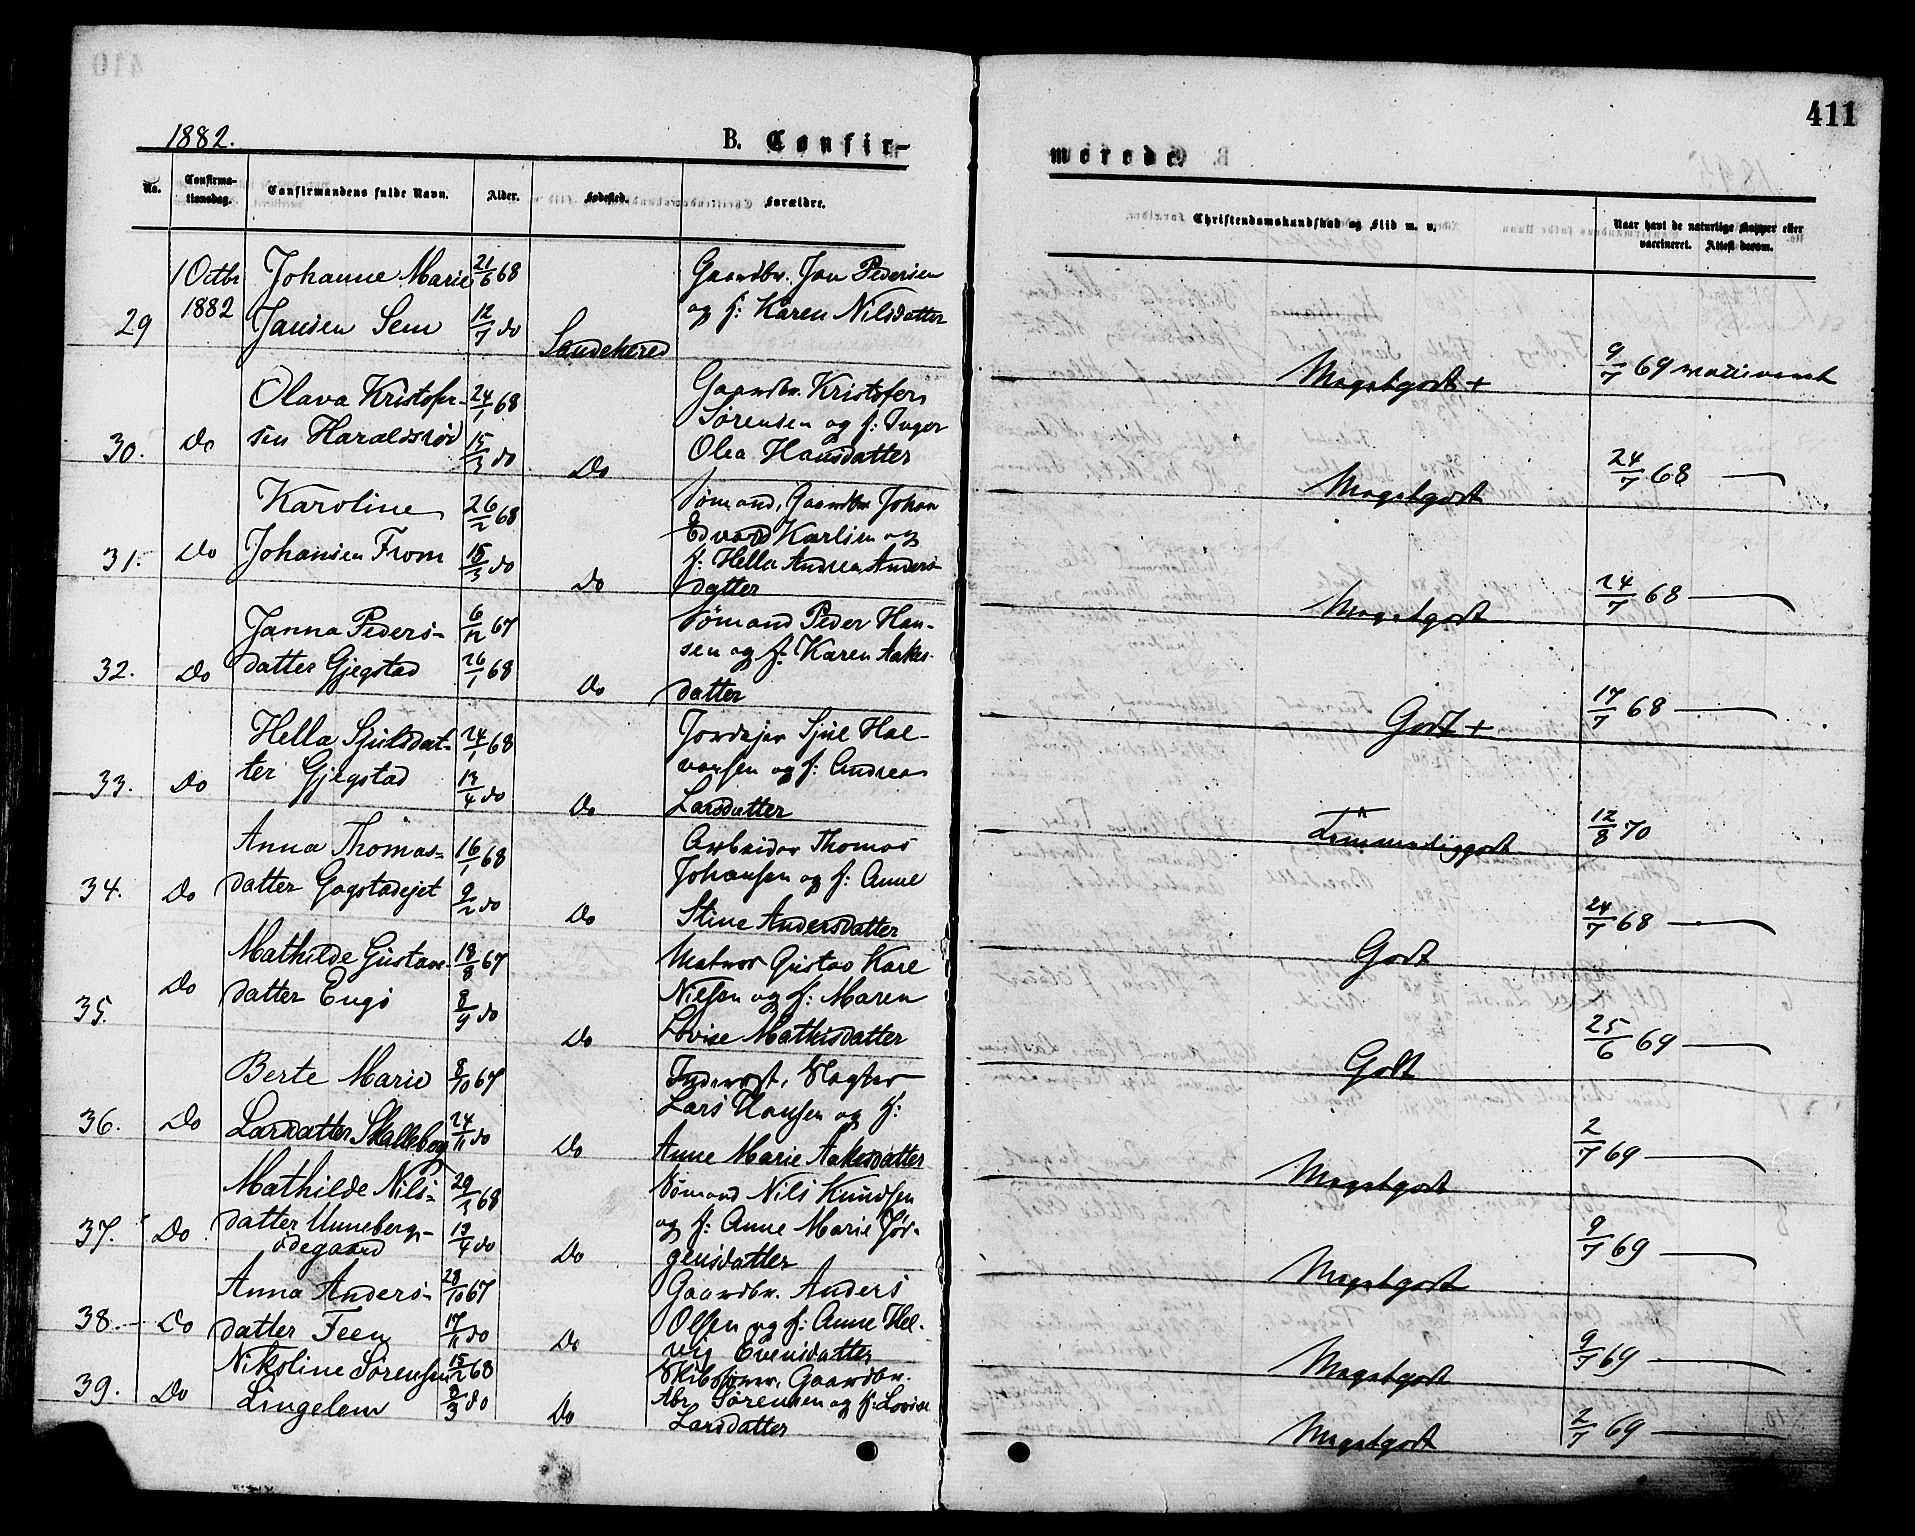 411
1882.
B. Confir-
merede.
No.
Confirma-
tionsdag.
Confirmandens fulde Navn.
Alder.
Fødested.
Forældre.
Christendomskundskab og Flid m. v.
Naar havt de naturlige Kopper eller
vaccineret. Attest derom.
29
1 Octbr
1882
Johanne Marie
Jansen Sem
21/6 68
12/7 do
Sandehered
Gaardbr. Jan Pedersen
og f: Karen Nilsdatter
Megetgodt +
9/7 69
30.
Do
Olava Kristofer-
sen Haraldsrød
24/1 68
15/3 do
Do
Gaardbr. Kristofer
Sørensen og f: Inger
Olea Hansdatter
Megetgodt
24/7 68 —
31.
Do
Karoline
Johansen From
26/2 68
15/3 do
Do
Sømand, Gaardbr Johan
Edvard Karlsen og
f: Hella Andrea Anders-
datter
Megetgodt
24/7 68 —
32.
Do
Janna Peders-
datter Gjegstad
6/12 67
26/1 68
Do
Sømand Peder Han-
sen og f: Karen Aakes-
datter
Godt +
17/7 68 —
33.
Do
Hella Sjulsdat-
ter Gjegstad
24/1 68
13/4 do
Do
Jordejer Sjul Hal-
vorsen og f: Andrea
Larsdatter
Temmeliggodt
12/8 70
34.
Do
Anna Thomas-
datter Gogstadejet
16/1 68
9/2 do
Do
Arbeider Thomas
Johansen og f: Anne
Stine Andersdatter
Godt
24/7 68 —
35.
Do
Mathilde Gustavs-
datter Engø
18/8 67
8/9 do
Do
Matros Gustav Karl
Nilsen og f: Maren
Lovise Mathisdatter
Godt
25/6 69 —
36.
Do
Berte Marie
Larsdatter Skalleberg
8/10 67
24/11 do
Do
Inderst, Slagter
Lars Hansen og f:
Anne Marie Aakesdatter
Megetgodt
2/7 69 —
37.
Do
Mathilde Nils-
datter Unneberg-
ødegaard
29/1 68
13/4 do
Do
Sømand Nils Knudsen
og f: Anne Marie Jør-
gensdatter
Megetgodt
9/7 69 —
38.
Do
Anna Anders-
datter Feen
28/10 67
17/11 do
Do
Gaardbr. Anders
Olsen og f: Anne Hel-
vig Evensdatter
Megetgodt
9/7 69 —
39.
Do
Nikoline Sørensen
Lingelem
15/2 68
8/3 do
Do
Gaardbr.
Abr Sørensen og f: Lovise
Larsdatter
Megetgodt
2/7 69 —